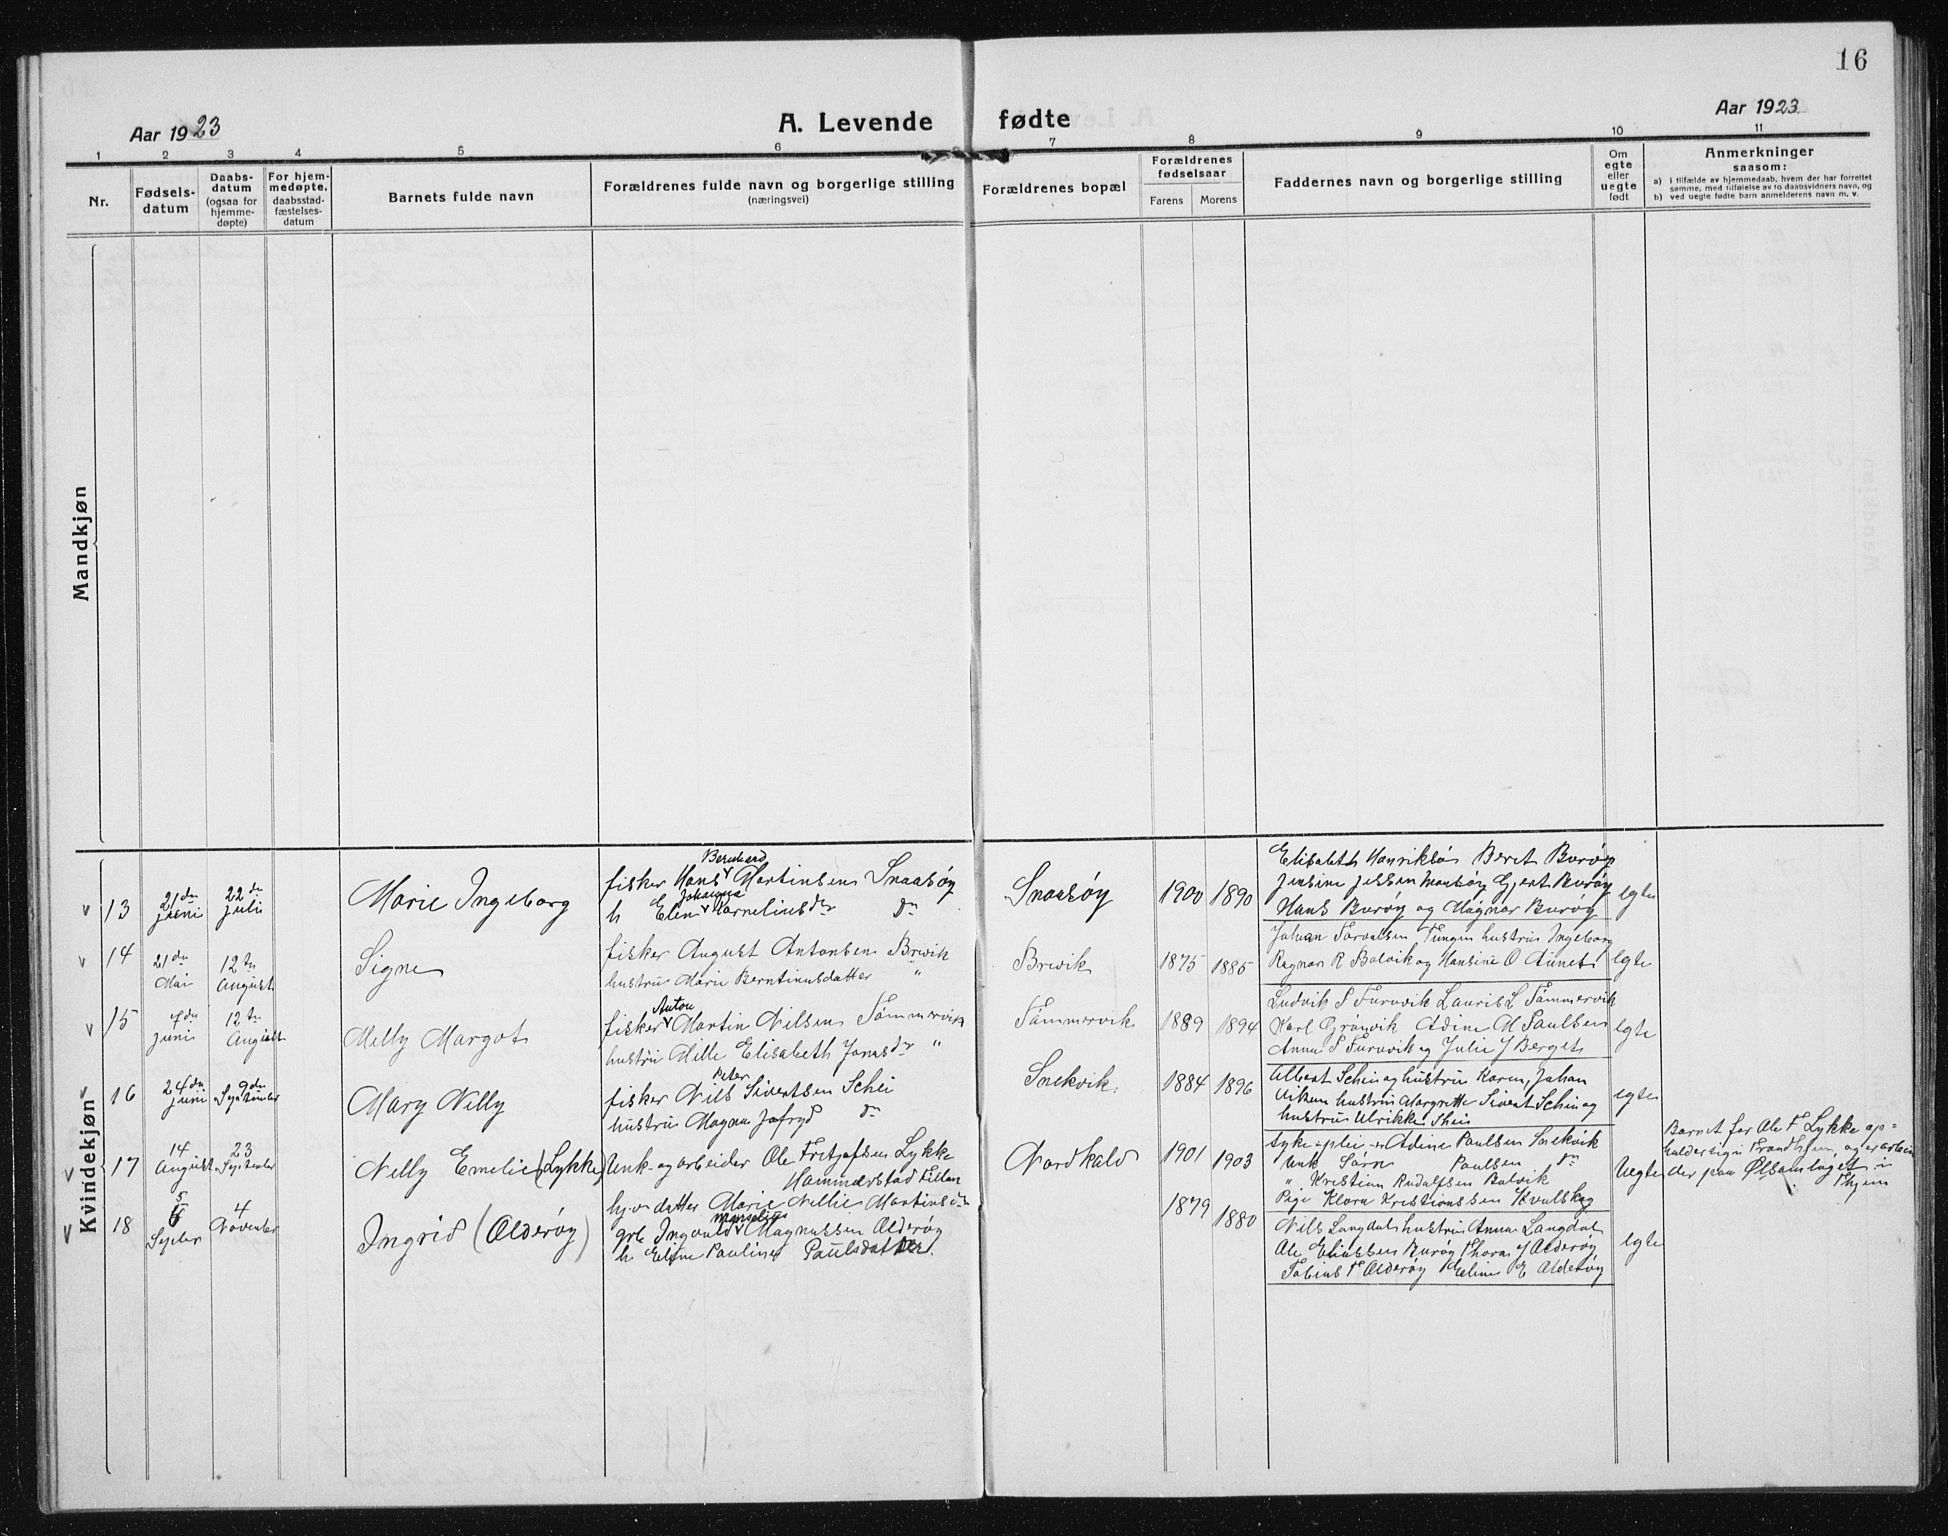 16
Aar 1923
A. Levende fødte
Aar 1923
1 2 3 4 5 6 7 8 9 10 11
Nr.
Fødsels-
datum
Daabs-
datum
(ogsaa for
hjemme-
døpte)
For hjem-
medøpte,
daabsstad-
fæstelses-
datum
Barnets fulde navn
Forældrenes fulde navn og borgerlige stilling
(næringsvei)
Forældrenes bopæl
Forældrenes
fødselsaar
Farens Morens
Faddernes navn og borgerlige stilling
Om
egte
eller
uegte
født
Anmerkninger
saasom:
a) i tilfælde av hjemmedaab, hvem der har forrettet
samme, med tilføielse av to daabsvidners navn, og
b) ved uegte fødte barn anmelderens navn m. v.
Mandkjøn
Kvindekjøn
13
21de
juni
22de
juli
Marie Ingeborg
Bernhard
fisker Hans Martinsen Snaasøy
Johanna
h Elen Korneliusdr do
Snaasøy
1900 1890
Elisabeth Henriksø Berit Burøy
Jensine Jessen Gjert Burøy
Hans Burøy og Magnar Burøy
egte
14
21de
Mai
12te
August
Signe
fisker August Antonsen Brevik
hustru Marie Berntinusdatter "
Brevik
1875 1885
Johan Torvalsen Tungen hustru Ingeborg
Ragnar R Balvik og Hansine O Aunet
egte
15
7de
juni
12te
August
Melly Margot
Anton
fisker Martin Nilsen Tømmervik
hustru Mille Elisabeth Jonasdr "
Tømmervik
1889 1894
Ludvik P Furuvik Laurits L Tømmervik
Karl Grønvik Adine M Paulsen
Anna P Furuvik og Julie J Berget
egte
16
24de
juni
9de
September
Mary Nelly
Peter
fisker Nils Sivertsen Schei
hustru Magna Jofryd do
Snekvik
1884 1896
Albert Schei og hustru Karen, Johan
Viken hustru Margrette Sivert Schei og
hustru Ulrikke Shei
egte
17
14
August
23
September
Nelly Emelie (Lykke)
Unk. og arbeider Ole Fretjofsen Lykke
Hammerstad Fillan
hjv. datter Marie Nellie Martinsdr
Nordkald
1901 1903
syke Adine Paulsen Snekvik
Unk Søren Paulsen do
" Kristian Rudolfsen Balvik
Pige Klara Kristianssen Kvalskag
Uegte
Barnet far Ole F Lykke op-
holder sig i Trondhjem, og er arbei
der paa Ølsamlaget i
Thjem
18
5
Septbr
4
November
Ingrid (Alderøy)
Marselius
grb Ingvald Magnussen Alderøy
h Eline Pauline Paulsdatter.
1879 1880
Nils Langdal hustru Anna Langdal
Ole Eliassen Burøy Thora J Alderøy
Tobias T Alderøy Eline E Alderøy
egte